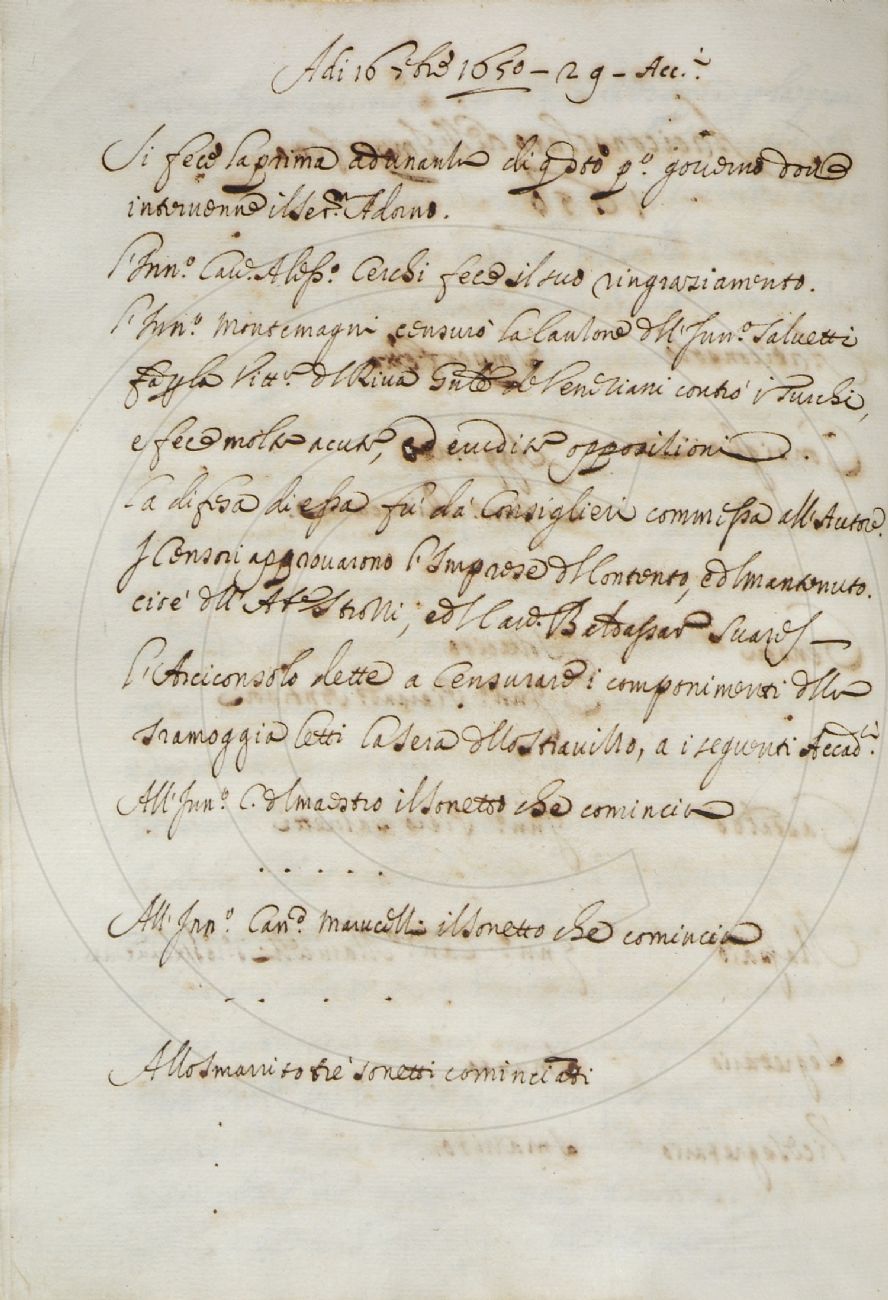 Adi 16 7bre 1650 – 29 – Acc.i
Si fece la prima adunanza di qsto po. governo dove
intervenne il Segr. Adorno.
l'Inno. Cav. Alessо. Cerchi fece il suo ringraziamento.
l'Inno. Montemagni censurò la Canzone dell'Inno. Salvetti
p la Vittа. de Veneziani contro i Turchi,
e fece molte acute, ed erudite oppositioni.
La difesa di essa fu da Consiglieri commessa all'Autore.
I Censori approvarono l'Imprese del Contento, e del mantenuto.
cioè dell'Ate. Strozzi, e del Cav. Baldassar Suares
l'Arciconsolo dette a Censurare i componimenti della
tramoggia letti la sera dello stravizzo, a i seguenti Accadci.
All'Inno. C. del maestro il sonetto che comincia
. . . . . .
All'Inno. Cand. Marucelli il sonetto che comincia
. . . .
Allo Smarrito tre sonetti cominciati
.
.
.